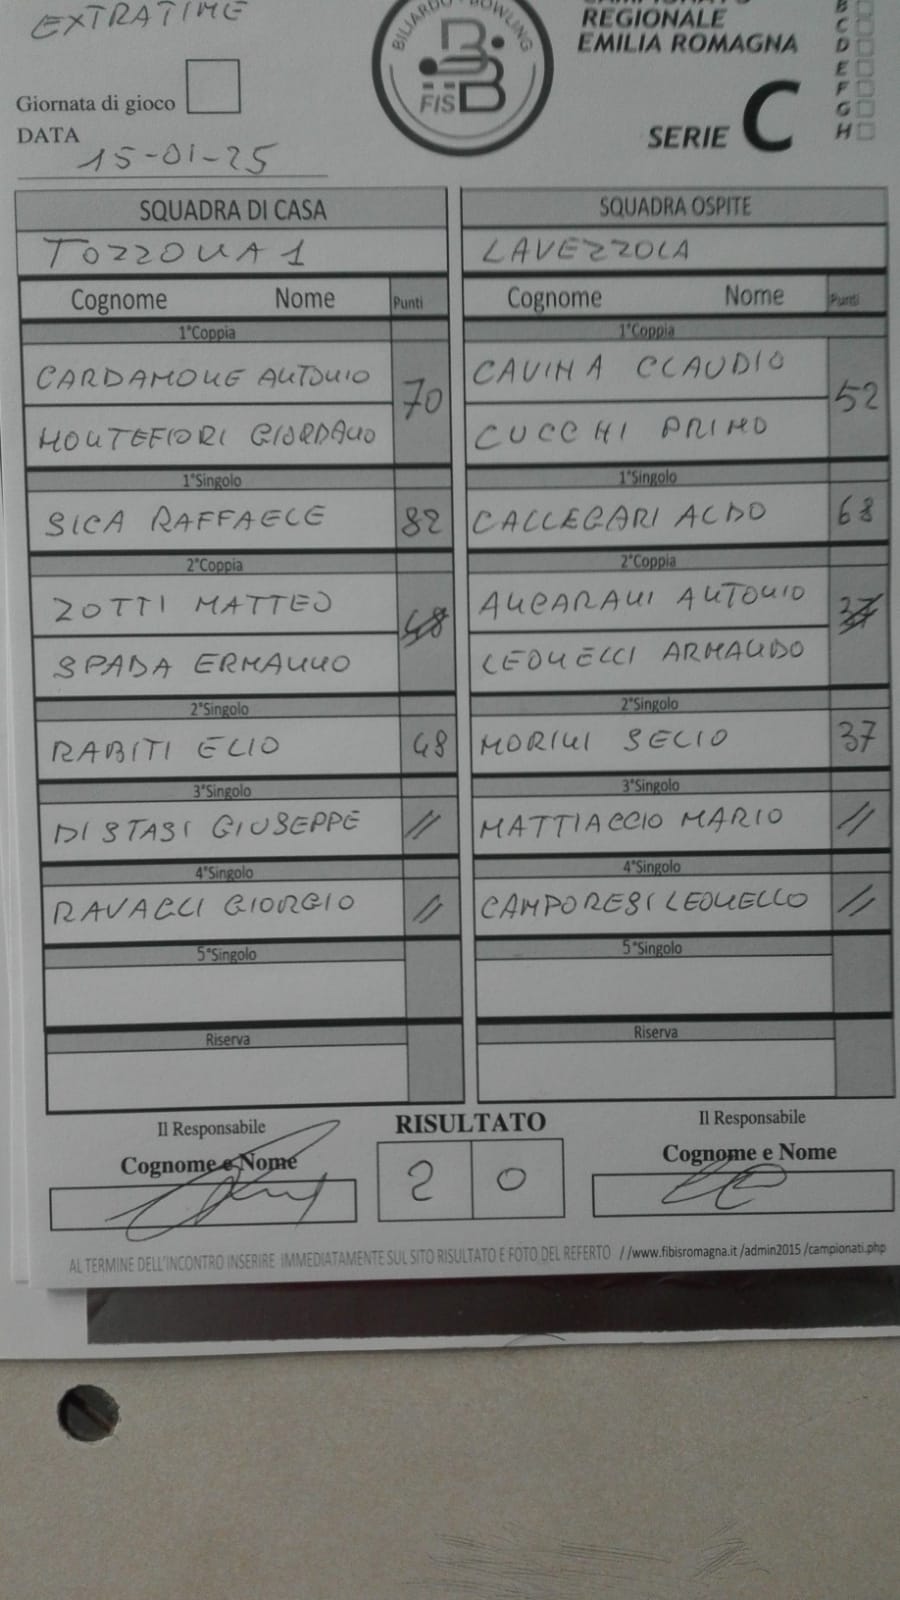 EXTRATIME
BILIARDO - BOWLING
FISBB
REGIONALE
EMILIA ROMAGNA
SERIE C
B
C
D
E
F
G
H
Giornata di gioco
DATA
15-01-25
SQUADRA DI CASA SQUADRA OSPITE
TOZZONA 1 LAVEZZOLA
Cognome Nome Punti Cognome Nome Punti
1°Coppia 1°Coppia
CARDAMONE ANTONIO 70 CAVINA CLAUDIO 52
MONTEFIORI GIORDANO CUCCHI PRIMO
1°Singolo 1°Singolo
SICA RAFFAELE 82 CALLEGARI ALDO 68
2°Coppia 2°Coppia
ZOTTI MATTEO 48 ANCARANI ANTONIO 37
SPADA ERMANNO LEONELLI ARMANDO
2°Singolo 2°Singolo
RABITI ELIO 48 MORINI SELIO 37
3°Singolo 3°Singolo
DI STASI GIUSEPPE // MATTIACCIO MARIO //
4°Singolo 4°Singolo
RAVAGLI GIORGIO // CAMPORESI LEONELLO //
5°Singolo 5°Singolo
Riserva Riserva
Il Responsabile RISULTATO Il Responsabile
Cognome e Nome 2 0 Cognome e Nome
AL TERMINE DELL'INCONTRO INSERIRE IMMEDIATAMENTE SUL SITO RISULTATO E FOTO DEL REFERTO //www.fibisromagna.it /admin2015 /campionati.php